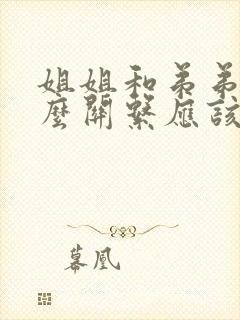 姐姐和弟弟
麼關繫應該
幕凰